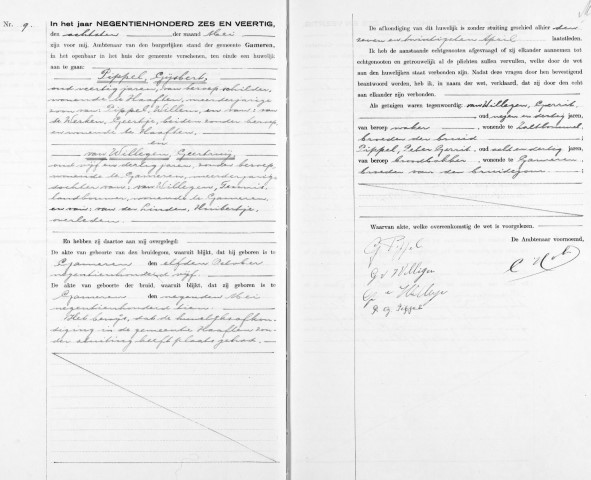 Nr. 9.
In het jaar NEGENTIENHONDERD ZES EN VEERTIG,
den achtsten der maand Mei
zijn voor mij, Ambtenaar van den burgerlijken stand der gemeente Gameren,
in het openbaar in het huis der gemeente verschenen, ten einde een huwelijk
aan te gaan:
Pippel, Gijsbert,
oud veertig jaren, van beroep schilder,
wonende te Haaften, meerderjarige
zoon van: Pippel, Willem, en van: van
te Werken, Geertje, beiden zonder beroep
en wonende te Haaften.
en
van Willegen, Geertruij
oud vijf en dertig jaren, zonder beroep,
wonende te Gameren, meerderjarige
dochter van: van Willegen, Teunis,
landbouwer, wonende te Gameren
en van: van der Linden, Huibertje,
overleden.
En hebben zij daartoe aan mij overgelegd:
De akte van geboorte des bruidegoms, waaruit blijkt, dat hij geboren is te
Gameren den elfden October
negentienhonderd vijf.
De akte van geboorte der bruid, waaruit blijkt, dat zij geboren is te
Gameren den negenden Mei
negentienhonderd tien.
Het bewijs, dat de huwelijksafkon-
diging in de gemeente Haaften zon-
der stuiting heeft plaats gehad.
De afkondiging van dit huwelijk is zonder stuiting geschied alhier den
zeven en twintigsten April laatstleden.
Ik heb de aanstaande echtgenooten afgevraagd of zij elkander aannemen tot
echtgenooten en getrouwelijk al de plichten zullen vervullen, welke door de wet
aan den huwelijken staat verbonden zijn. Nadat deze vragen door hen bevestigend
beantwoord werden, heb ik, in naam der wet, verklaard, dat zij door den echt
aan elkander zijn verbonden.
Als getuigen waren tegenwoordig: van Willegen, Gerrit,
oud negen en dertig jaren,
van beroep wonende te Zaltbommel,
broeder der bruid
Pippel, Peter Gerrit, oud acht en dertig jaren,
van beroep broodbakker, wonende te Gameren,
broeder van den bruidegom.
Waarvan akte, welke overeenkomstig de wet is voorgelezen.
De Ambtenaar voornoemd,
G. Pippel
G. v Willegen
G. v Willege
P. G. Pippel